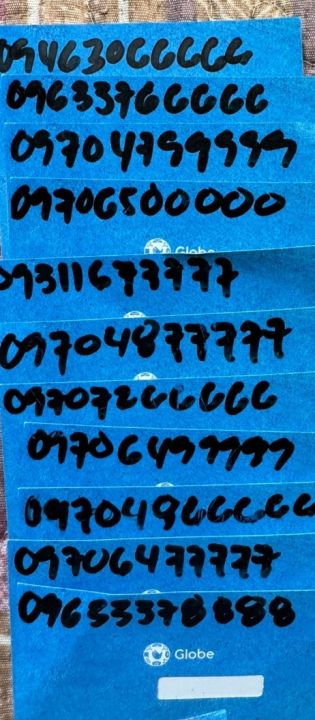 09463066666
09633766666
09704799999
09706500000
Globe
09311677777
09704877777
09707266666
09706499999
09704966666
09706477777
09653378888
Globe